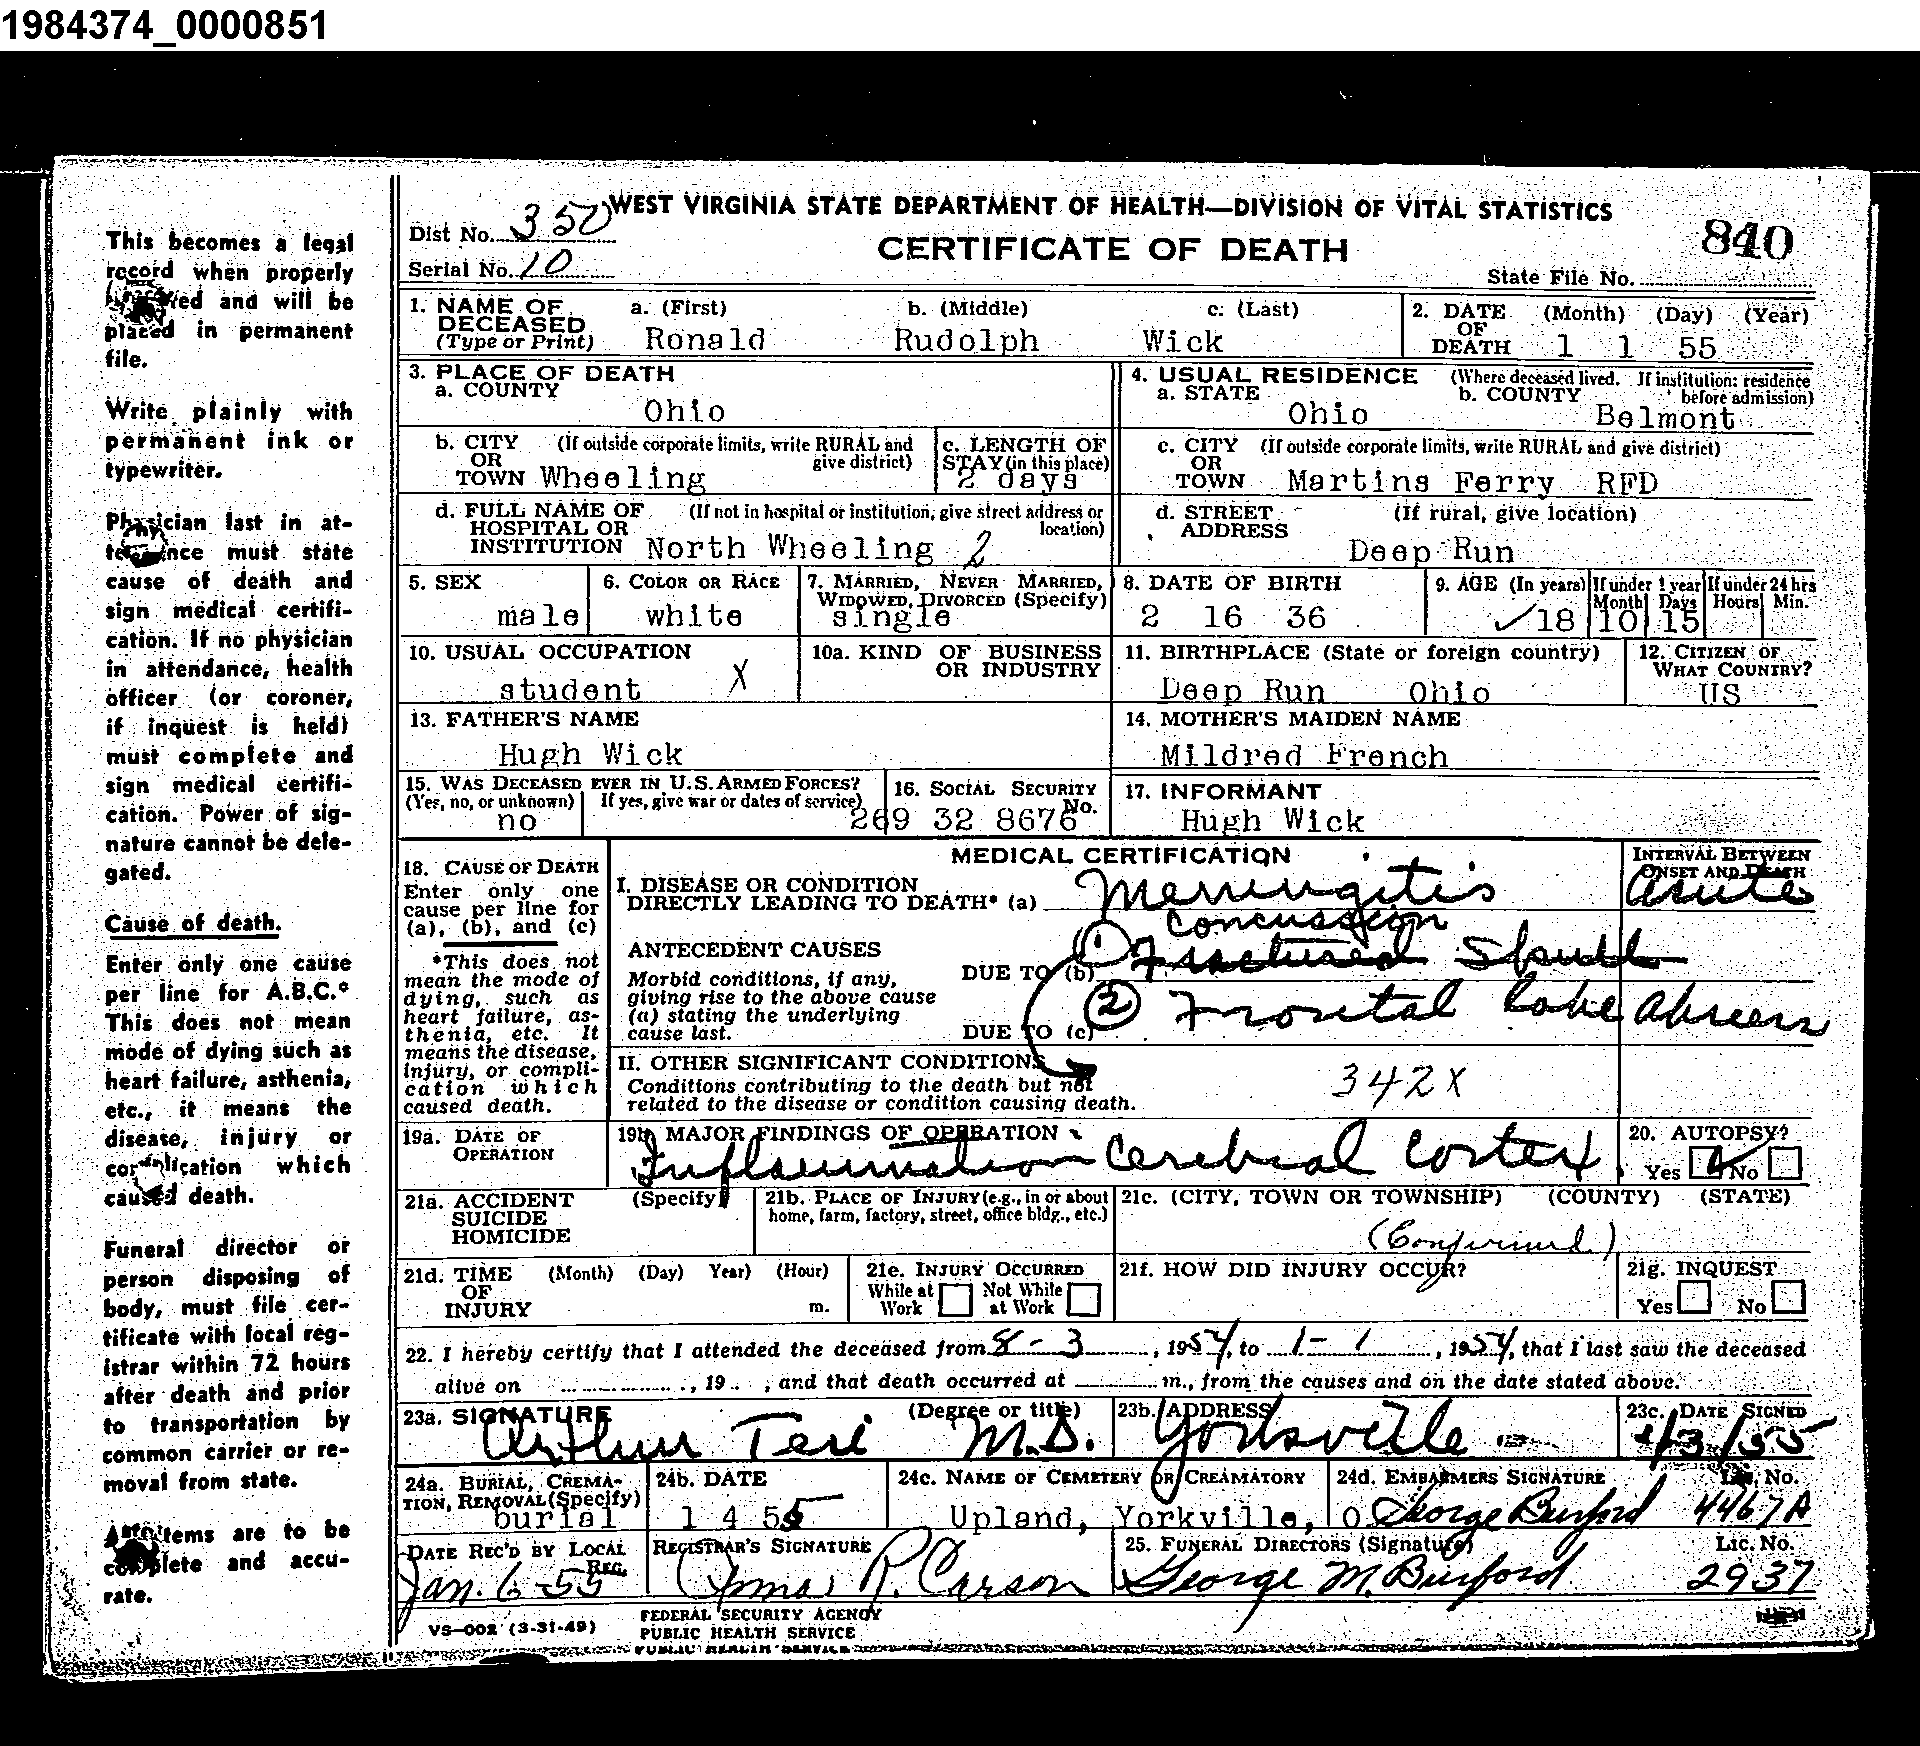 1984374_0000851
WEST VIRGINIA STATE DEPARTMENT OF HEALTH—DIVISION OF VITAL STATISTICS
Dist No. 350
CERTIFICATE OF DEATH
840
Serial No. 10
State File No.
This becomes a legal
record when properly
and will be
placed in permanent
file.
Write plainly with
permanent ink or
typewriter.
Physician last in at-
tendance must state
cause of death and
sign medical certifi-
cation. If no physician
in attendance, health
officer (or coroner,
if inquest is held)
must complete and
sign medical certifi-
cation. Power of sig-
nature cannot be dele-
gated.
Cause of death.
Enter only one cause
per line for A.B.C.*
This does not mean
mode of dying such as
heart failure, asthenia,
etc., it means the
disease, injury or
complication which
caused death.
Funeral director or
person disposing of
body, must file cer-
tificate with local reg-
istrar within 72 hours
after death and prior
to transportation by
common carrier or re-
moval from state.
items are to be
complete and accu-
rate.
1. NAME OF DECEASED (Type or Print) a. (First) b. (Middle) c. (Last)
Ronald Rudolph Wick
2. DATE OF DEATH (Month) (Day) (Year)
1 1 55
3. PLACE OF DEATH
a. COUNTY
Ohio
4. USUAL RESIDENCE (Where deceased lived. If institution: residence before admission)
a. STATE b. COUNTY
Ohio Belmont
b. CITY OR TOWN (If outside corporate limits, write RURAL and give district)
Wheeling
c. LENGTH OF STAY (in this place)
2 days
c. CITY OR TOWN (If outside corporate limits, write RURAL and give district)
Martins Ferry RFD
d. FULL NAME OF HOSPITAL OR INSTITUTION (If not in hospital or institution, give street address or location)
North Wheeling 2
d. STREET ADDRESS (If rural, give location)
Deep Run
5. SEX
male
6. COLOR OR RACE
white
7. MARRIED, NEVER MARRIED, WIDOWED, DIVORCED (Specify)
single
8. DATE OF BIRTH
2 16 36
9. AGE (In years) If under 1 year If under 24 hrs
Month Days Hours Min.
18 10 15
10. USUAL OCCUPATION
student X
10a. KIND OF BUSINESS OR INDUSTRY
11. BIRTHPLACE (State or foreign country)
Deep Run Ohio
12. CITIZEN OF WHAT COUNTRY?
US
13. FATHER'S NAME
Hugh Wick
14. MOTHER'S MAIDEN NAME
Mildred French
15. WAS DECEASED EVER IN U.S. ARMED FORCES?
(Yes, no, or unknown) If yes, give war or dates of service)
no
16. SOCIAL SECURITY No.
269 32 8676
17. INFORMANT
Hugh Wick
18. CAUSE OF DEATH
Enter only one
cause per line for
(a), (b), and (c)
*This does not
mean the mode of
dying, such as
heart failure, as-
thenia, etc. It
means the disease,
injury, or compli-
cation which
caused death.
MEDICAL CERTIFICATION
INTERVAL BETWEEN ONSET AND DEATH
I. DISEASE OR CONDITION
DIRECTLY LEADING TO DEATH* (a) Meningitis
acute
concussion
ANTECEDENT CAUSES
Morbid conditions, if any,
giving rise to the above cause
(a) stating the underlying
cause last.
DUE TO (b) 1 Fractured Skull
DUE TO (c) 2 Frontal lobe Abscess
II. OTHER SIGNIFICANT CONDITIONS
Conditions contributing to the death but not
related to the disease or condition causing death.
342X
19a. DATE OF OPERATION
19b. MAJOR FINDINGS OF OPERATION
Inflammation Cerebral Cortex
20. AUTOPSY?
Yes No
21a. ACCIDENT SUICIDE HOMICIDE (Specify)
21b. PLACE OF INJURY (e.g., in or about home, farm, factory, street, office bldg., etc.)
21c. (CITY, TOWN OR TOWNSHIP) (COUNTY) (STATE)
(Confirmed)
21d. TIME OF INJURY (Month) (Day) Year) (Hour) m.
21e. INJURY OCCURRED
While at Work Not While at Work
21f. HOW DID INJURY OCCUR?
21g. INQUEST
Yes No
22. I hereby certify that I attended the deceased from 8-3, 1954, to 1-1, 1954, that I last saw the deceased
alive on , 19 , and that death occurred at m., from the causes and on the date stated above.
23a. SIGNATURE (Degree or title)
Arthur Teri M.D.
23b. ADDRESS
Yorkville
23c. DATE SIGNED
1/3/55
24a. BURIAL, CREMATION, REMOVAL (Specify)
burial
24b. DATE
1 4 55
24c. NAME OF CEMETERY OR CREAMATORY
Upland, Yorkville, O
24d. EMBALMERS SIGNATURE Lic. No.
George Burford 4467A
DATE REC'D BY LOCAL REG.
Jan. 6-55
REGISTRAR'S SIGNATURE
R. Carson
25. FUNERAL DIRECTORS (Signature) LIC. No.
George M. Burford 2937
VS-002 (3-31-49)
FEDERAL SECURITY AGENCY
PUBLIC HEALTH SERVICE
PUBLIC HEALTH SERVICE